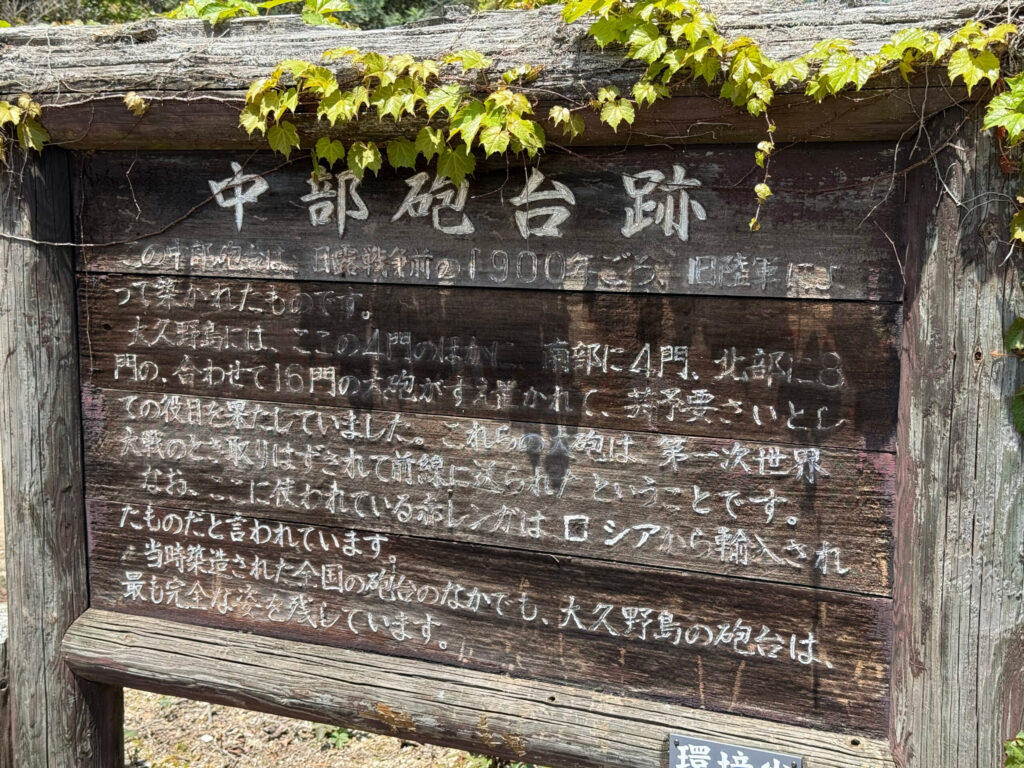 中部砲台跡
この中部砲台は、日露戦争前の1900年ごろ、旧陸軍によ
って築かれたものです。
大久野島には、ここの4門のほかに、南部に4門、北部に8
門の、合わせて16門の大砲がすえ置かれて、芸予要さいとし
ての役目を果たしていました。これらの大砲は、第一次世界
大戦のとき取りはずされて前線に送られたということです。
なお、ここに使われている赤レンガはロシアから輸入され
たものだと言われています。
当時築造された全国の砲台のなかでも、大久野島の砲台は、
最も完全な姿を残しています。
環境省